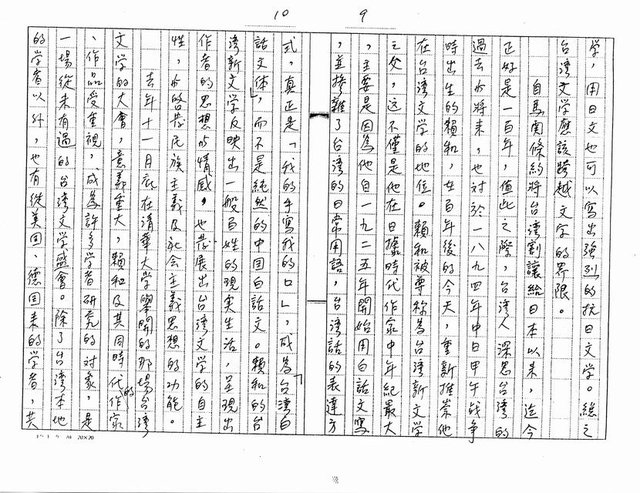 9
學，用日文也可以寫出強烈的抗日文學。總之
台灣文學應該跨越文字的界限。
自馬関條約將台灣割讓給日本以來，迄今
正好是一百年，值此之際，台灣人深思台灣的
過去和將來，也对於一八九四年中日甲午战争
時出生的賴和，在百年後的今天，重新推崇他
在台灣文學的地位。賴和被尊称為台灣新文学
之父，这不僅是他在日據時代作家中年紀最大
，主要是因為他自一九二五年開始用白話文寫
，並摻雜了台灣的日常用語，台灣話的表達方
10
式，真正是「我的手寫我的口」，成為「台灣白
話文体」，而不是純然的中国白話文。賴和的台
灣新文学反映出一般百姓的現実生活，呈現出
作者的思想与情感。也發展出台灣文学的自主
性，和啓發民族主義及社会主義思想的功能。
去年十一月底在清華大学舉開的那場台灣
文学的大會，意義重大，賴和及其同時代的作家
、作品受重視，成為許多学者研究的对象，是
一場從未有過的台灣文学盛會。除了台灣本地
的学者以外，也有從美国、德国来的学者，共